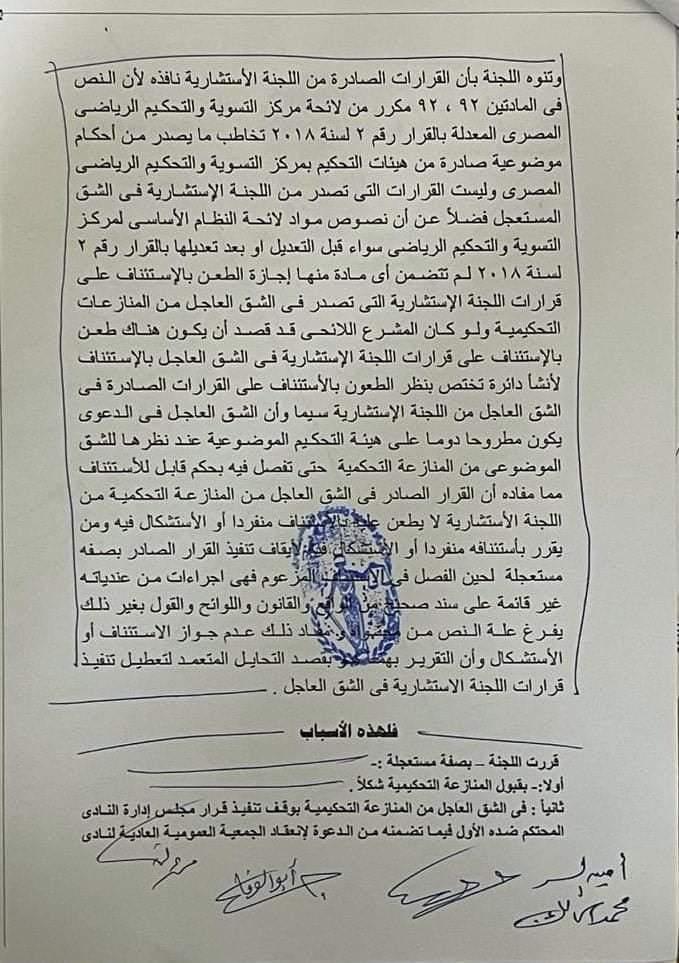 وتنوه اللجنة بأن القرارات الصادرة من اللجنة الأستشارية نافذه لأن النص
فى المادتين ٩٢ ، ٩٢ مكرر من لائحة مركز التسوية والتحكيم الرياضى
المصرى المعدلة بالقرار رقم ٢ لسنة ٢٠١٨ تخاطب ما يصدر من أحكام
موضوعية صادرة من هيئات التحكيم بمركز التسوية والتحكيم الرياضى
المصرى وليست القرارات التى تصدر من اللجنة الإستشارية فى الشق
المستعجل فضلاً عن أن نصوص مواد لائحة النظام الأساسى لمركز
التسوية والتحكيم الرياضى سواء قبل التعديل او بعد تعديلها بالقرار رقم ٢
لسنة ٢٠١٨ لم تتضمن أى مادة منها إجازة الطعن بالإستئناف على
قرارات اللجنة الإستشارية التى تصدر فى الشق العاجل من المنازعات
التحكيمية ولو كان المشرع اللائحى قد قصد أن يكون هناك طعن
بالإستئناف على قرارات اللجنة الإستشارية فى الشق العاجل بالإستئناف
لأنشأ دائرة تختص بنظر الطعون بالأستئناف على القرارات الصادرة فى
الشق العاجل من اللجنة الإستشارية سيما وأن الشق العاجل فى الدعوى
يكون مطروحا دوما على هيئة التحكيم الموضوعية عند نظرها للشق
الموضوعى من المنازعة التحكمية حتى تفصل فيه بحكم قابل للأستئناف
مما مفاده أن القرار الصادر فى الشق العاجل من المنازعة التحكمية من
اللجنة الأستشارية لا يطعن عليه بالإستئناف منفردا أو الأستشكال فيه ومن
يقرر بأستئنافه منفردا أو الإستشكال فيه لإيقاف تنفيذ القرار الصادر بصفه
مستعجلة لحين الفصل فى المزعوم فهى اجراءات من عندياته
غير قائمة على سند صحيح من الواقع والقانون واللوائح والقول بغير ذلك
يفرغ علة النص من ومفاد ذلك عدم جواز الاستئناف أو
الأستشكال وأن التقرير بقصد التحايل المتعمد لتعطيل تنفيذ
قرارات اللجنة الاستشارية فى الشق العاجل .
فلهذه الأسباب
قررت اللجنة – بصفة مستعجلة :-
أولا:- بقبول المنازعة التحكيمية شكلاً .
ثانياً : فى الشق العاجل من المنازعة التحكيمية بوقف تنفيذ قرار مجلس إدارة النادى
المحتكم ضده الأول فيما تضمنه من الدعوة لإنعقاد الجمعية العمومية العادية لنادى